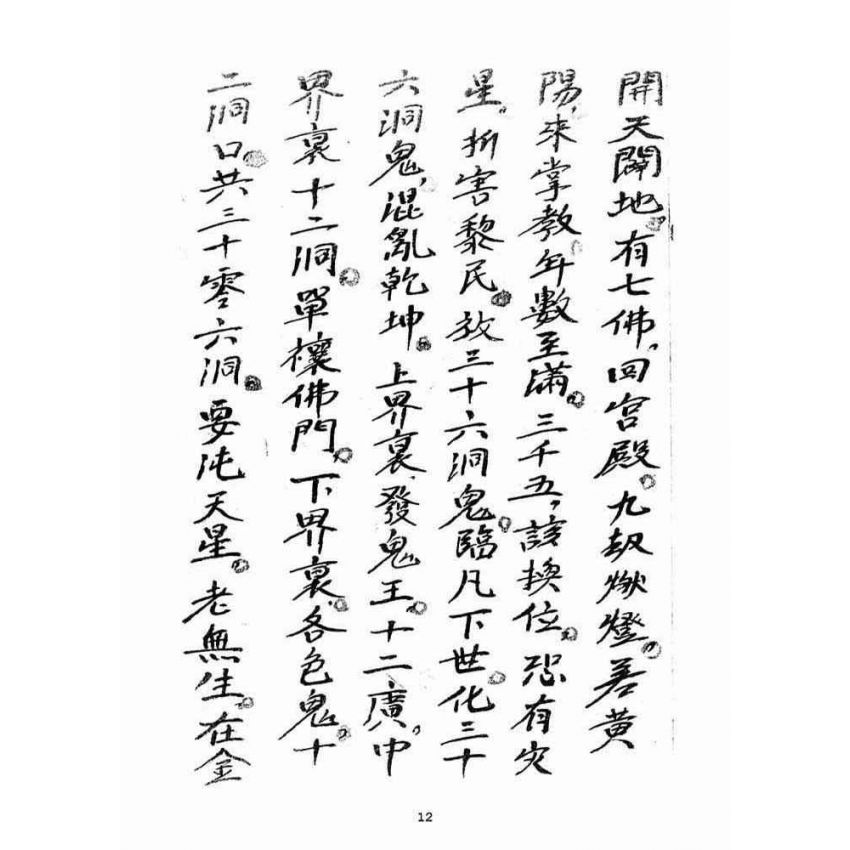 開天闢地。有七佛，回宮殿。九劫燃燈。若黃
陽，來掌教。年數至滿。三千五，該換位。恐有灾
星。折害黎民。放三十六洞鬼。臨凡下世。化三十
六洞鬼，混亂乾坤。上界裏、發鬼王。十二廣。中
界裏十二洞。單禳佛門。下界裏、各色鬼。十
二洞口。共三十零六洞。要沌天星。老無生。在金
12